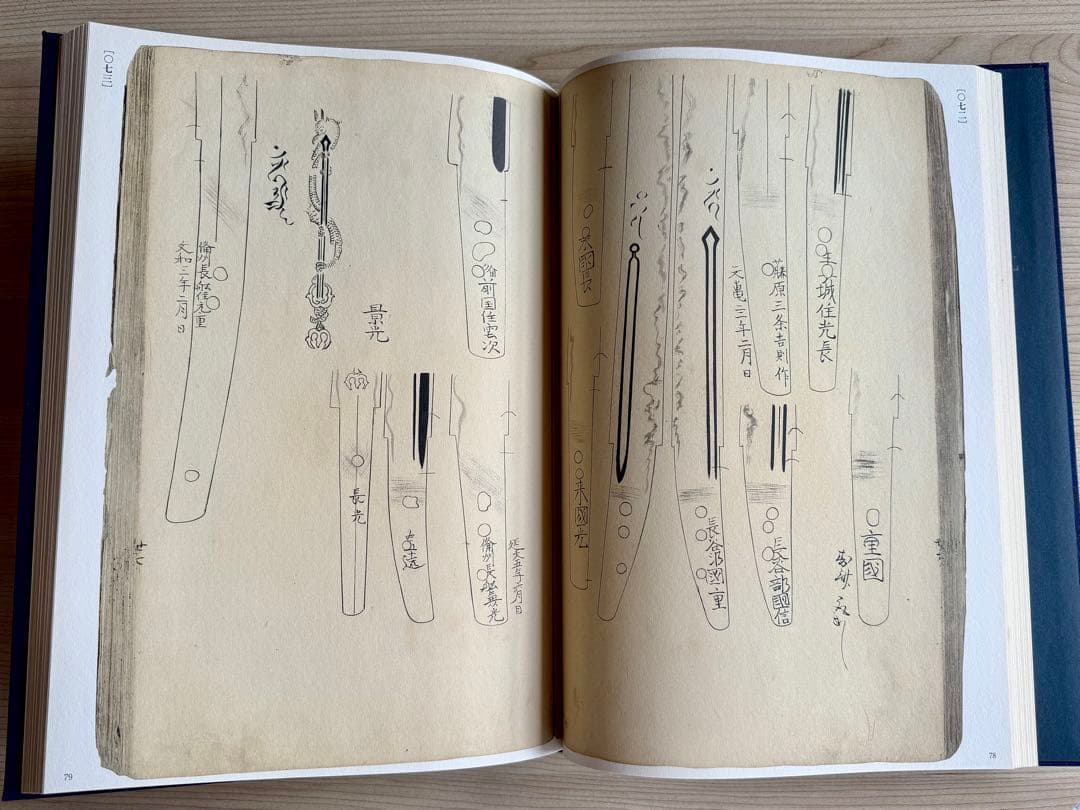 〔〇七二〕
城住光長
藤原三条吉則作
文亀三年二月日
重國
長谷部國信
長谷部國重
来國長
来國光
78
〔〇七三〕
備前国住雲次
景光
備州長船住元重
文和三年二月日
延文五年六月日
備州長船兼光
吉遠
長光
79